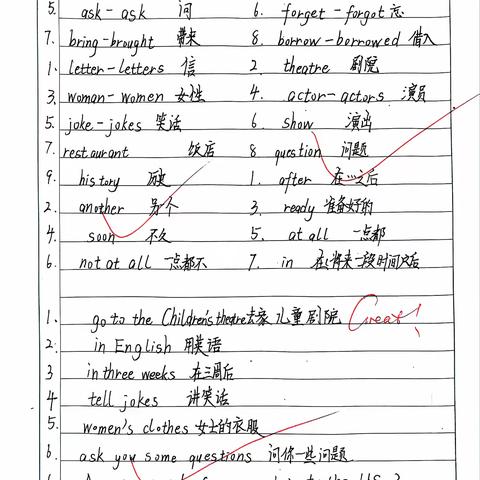 5. ask - ask 问 6. forget - forgot 忘
7. bring - brought 带来 8. borrow - borrowed 借入
1. letter - letters 信 2. theatre 剧院
3. woman - women 女性 4. actor - actors 演员
5. joke - jokes 笑话 6. show 演出
7. restaurant 饭店 8 question 问题
9. history 历史 1. after 在…之后
2. another 另个 3. ready 准备好的
4. soon 不久 5. at all 一点都
6. not at all 一点都不 7. in 在将来一段时间之后
1. go to the Children's theatre 去 儿童剧院 Great!
2. in English 用英语
3 in three weeks 在三周后
4 tell jokes 讲笑话
5. women's clothes 女士的衣服
6. ask you some questions 问你一些问题